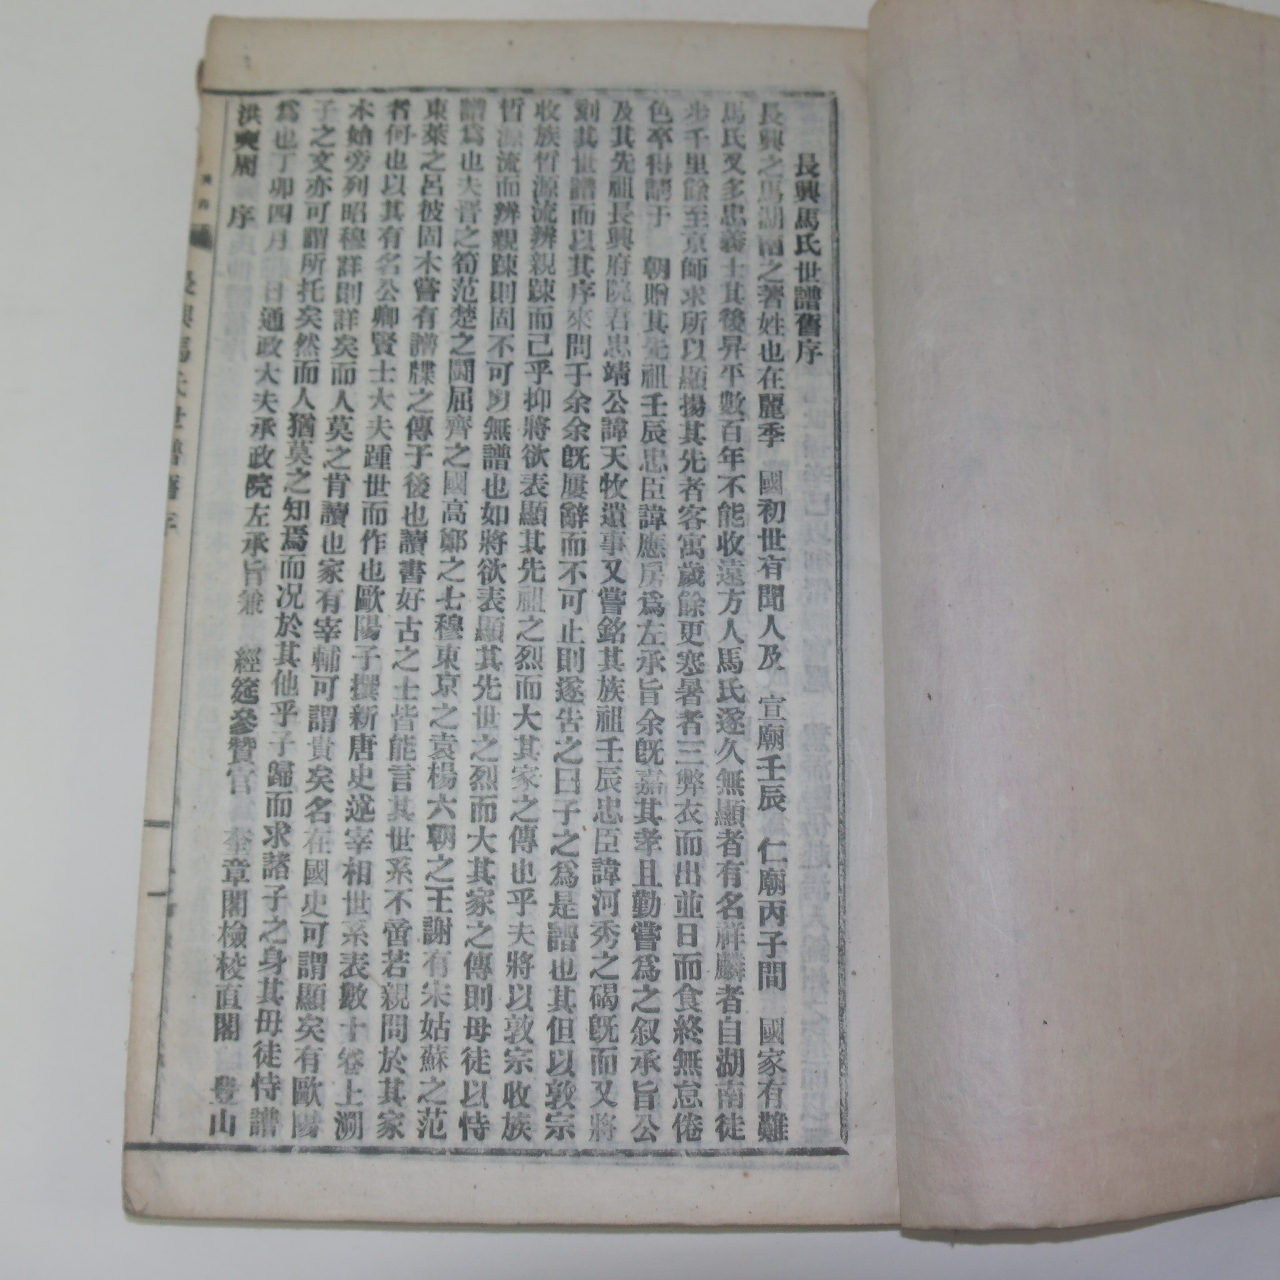 長興馬氏世譜舊序
長興之馬湖南之著姓也在麗季 國初世有聞人及 宣廟壬辰 仁廟丙子間 國家有難
馬氏又多忠義士其後昇平數百年不能收遠方人馬氏遂久無顯者有名祥麟者自湖南徒
步千里餘至京師求所以顯揚其先者客寓歲餘更寒暑者三弊衣而出並日而食終無怠倦
色卒得請于 朝贈其先祖壬辰忠臣諱應房爲左承旨余旣嘉其孝且勤嘗爲之叙承旨公
及其先祖長興府院君忠靖公諱天牧遺事又嘗銘其族祖壬辰忠臣諱河秀之碣旣而又將
刻其世譜而以其序來問于余余旣屢辭而不可止則遂告之曰子之爲是譜也其但以敦宗
收族晢源流辨親踈而已乎抑將欲表顯其先祖之烈而大其家之傳也乎夫將以敦宗收族
晢源流而辨親踈則固不可男無譜也如將欲表顯其先世之烈而大其家之傳則毋徒以恃
譜爲也夫晋之筍范楚之鬪屈齊之國高鄭之七穆東京之袁楊六朝之王謝有宋姑蘇之范
東萊之呂彼固木嘗有譜牒之傳于後也讀書好古之士皆能言其世系不啻若親問於其家
者何也以其有名公卿賢士大夫踵世而作也歐陽子撰新唐史述宰相世系表數十卷上溯
木始旁列昭穆詳則詳矣而人莫之肯讀也家有宰輔可謂貴矣名在國史可謂顯矣有歐陽
子之文亦可謂所托矣然而人猶莫之知焉而况於其他乎子歸而求諸子之身其毋徒恃譜
爲也丁卯四月 日通政大夫承政院左承旨兼 經筵參贊官 奎章閣檢校直閣 豊山
洪奭周 序
長興馬氏世譜舊序
一